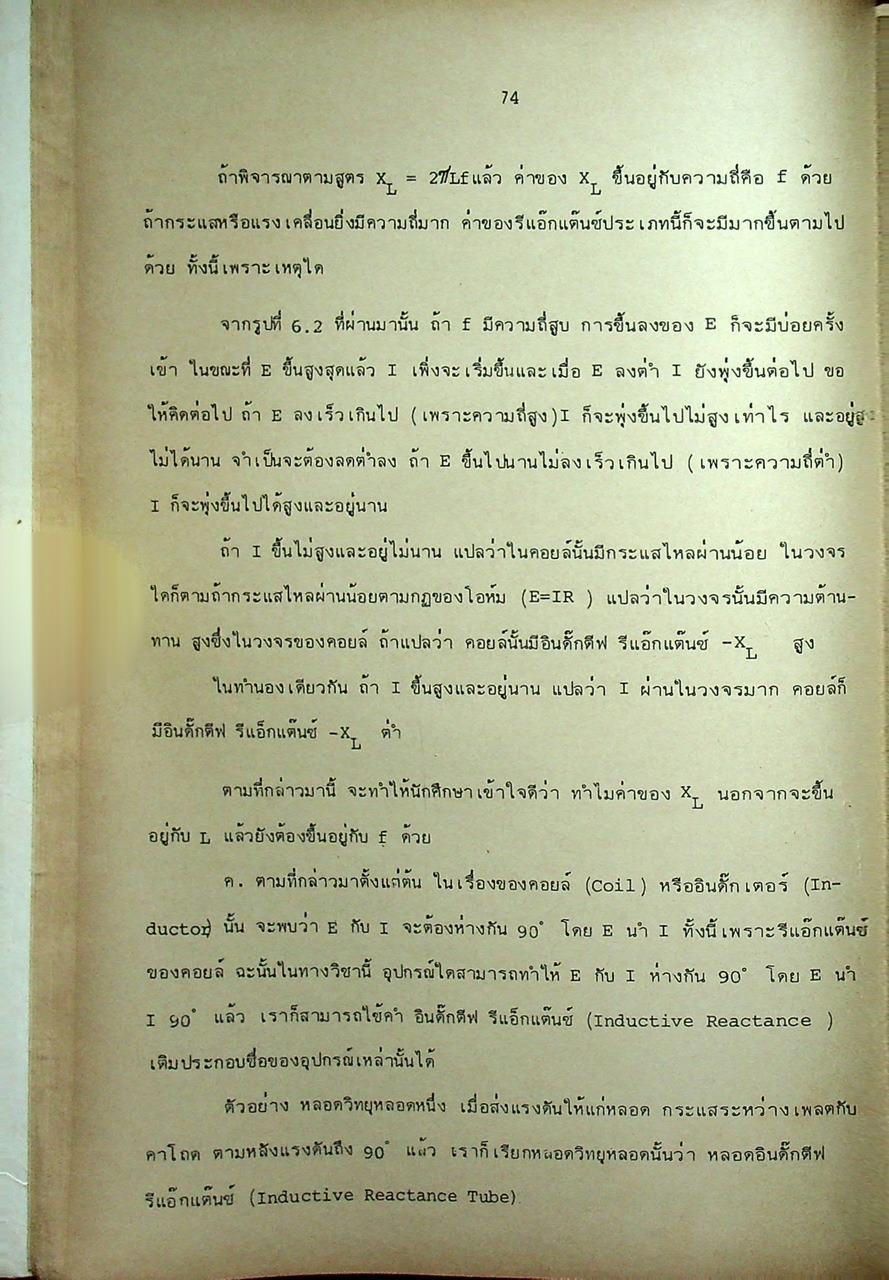 74
ถ้าพิจารณาตามสูตร X_L = 2πLf แล้ว ค่าของ X_L ขึ้นอยู่กับความถี่คือ f ด้วย
ถ้ากระแสหรือแรงเคลื่อนยิ่งมีความถี่มาก ค่าของรีแอ๊กแต๊นซ์ประเภทนี้ก็จะมีมากขึ้นตามไป
ด้วย ทั้งนี้เพราะเหตุใด
จากรูปที่ 6.2 ที่ผ่านมานั้น ถ้า f มีความถี่สูบ การขึ้นลงของ E ก็จะมีบ่อยครั้ง
เข้า ในขณะที่ E ขึ้นสูงสุดแล้ว I เพิ่งจะเริ่มขึ้นและเมื่อ E ลงต่ำ I ยังพุ่งขึ้นต่อไป ขอ
ให้คิดต่อไป ถ้า E ลงเร็วเกินไป (เพราะความถี่สูง) I ก็จะพุ่งขึ้นไปไม่สูงเท่าไร และอยู่สู
ไม่ได้นาน จำเป็นจะต้องลดต่ำลง ถ้า E ขึ้นไปนานไม่ลงเร็วเกินไป (เพราะความถี่ต่ำ)
I ก็จะพุ่งขึ้นไปได้สูงและอยู่นาน
ถ้า I ขึ้นไม่สูงและอยู่ไม่นาน แปลว่าในคอยล์นั้นมีกระแสไหลผ่านน้อย ในวงจร
ใดก็ตามถ้ากระแสไหลผ่านน้อยตามกฏของโอห์ม (E=IR ) แปลว่าในวงจรนั้นมีความต้าน-
ทาน สูงซึ่งในวงจรของคอยล์ ถ้าแปลว่า คอยล์นั้นมีอินดั๊กตีฟ รีแอ๊กแต๊นซ์ -X_L สูง
ในทำนองเดียวกัน ถ้า I ขึ้นสูงและอยู่นาน แปลว่า I ผ่านในวงจรมาก คอยล์ก็
มีอินดั๊กตีฟ รีแอ็กแต๊นซ์ -X_L ต่ำ
ตามที่กล่าวมานี้ จะทำให้นักศึกษาเข้าใจดีว่า ทำไมค่าของ X_L นอกจากจะขึ้น
อยู่กับ L แล้วยังต้องขึ้นอยู่กับ f ด้วย
ค. ตามที่กล่าวมาตั้งแต่ต้น ในเรื่องของคอยล์ (Coil) หรืออินดั๊กเตอร์ (In-
ductor) นั้น จะพบว่า E กับ I จะต้องห่างกัน 90° โดย E นำ I ทั้งนี้เพราะรีแอ๊กแต๊นซ์
ของคอยล์ ฉะนั้นในทางวิชานี้ อุปกรณ์ใดสามารถทำให้ E กับ I ห่างกัน 90° โดย E นำ
I 90° แล้ว เราก็สามารถใช้คำ อินดั๊กตีฟ รีแอ็กแต๊นซ์ (Inductive Reactance )
เติมประกอบชื่อของอุปกรณ์เหล่านั้นได้
ตัวอย่าง หลอดวิทยุหลอดหนึ่ง เมื่อส่งแรงดันให้แก่หลอด กระแสระหว่างเพลตกับ
คาโถด ตามหลังแรงดันถึง 90° แล้ว เราก็เรียกหลอดวิทยุหลอดนั้นว่า หลอดอินดั๊กตีฟ
รีแอ๊กแต๊นซ์ (Inductive Reactance Tube)